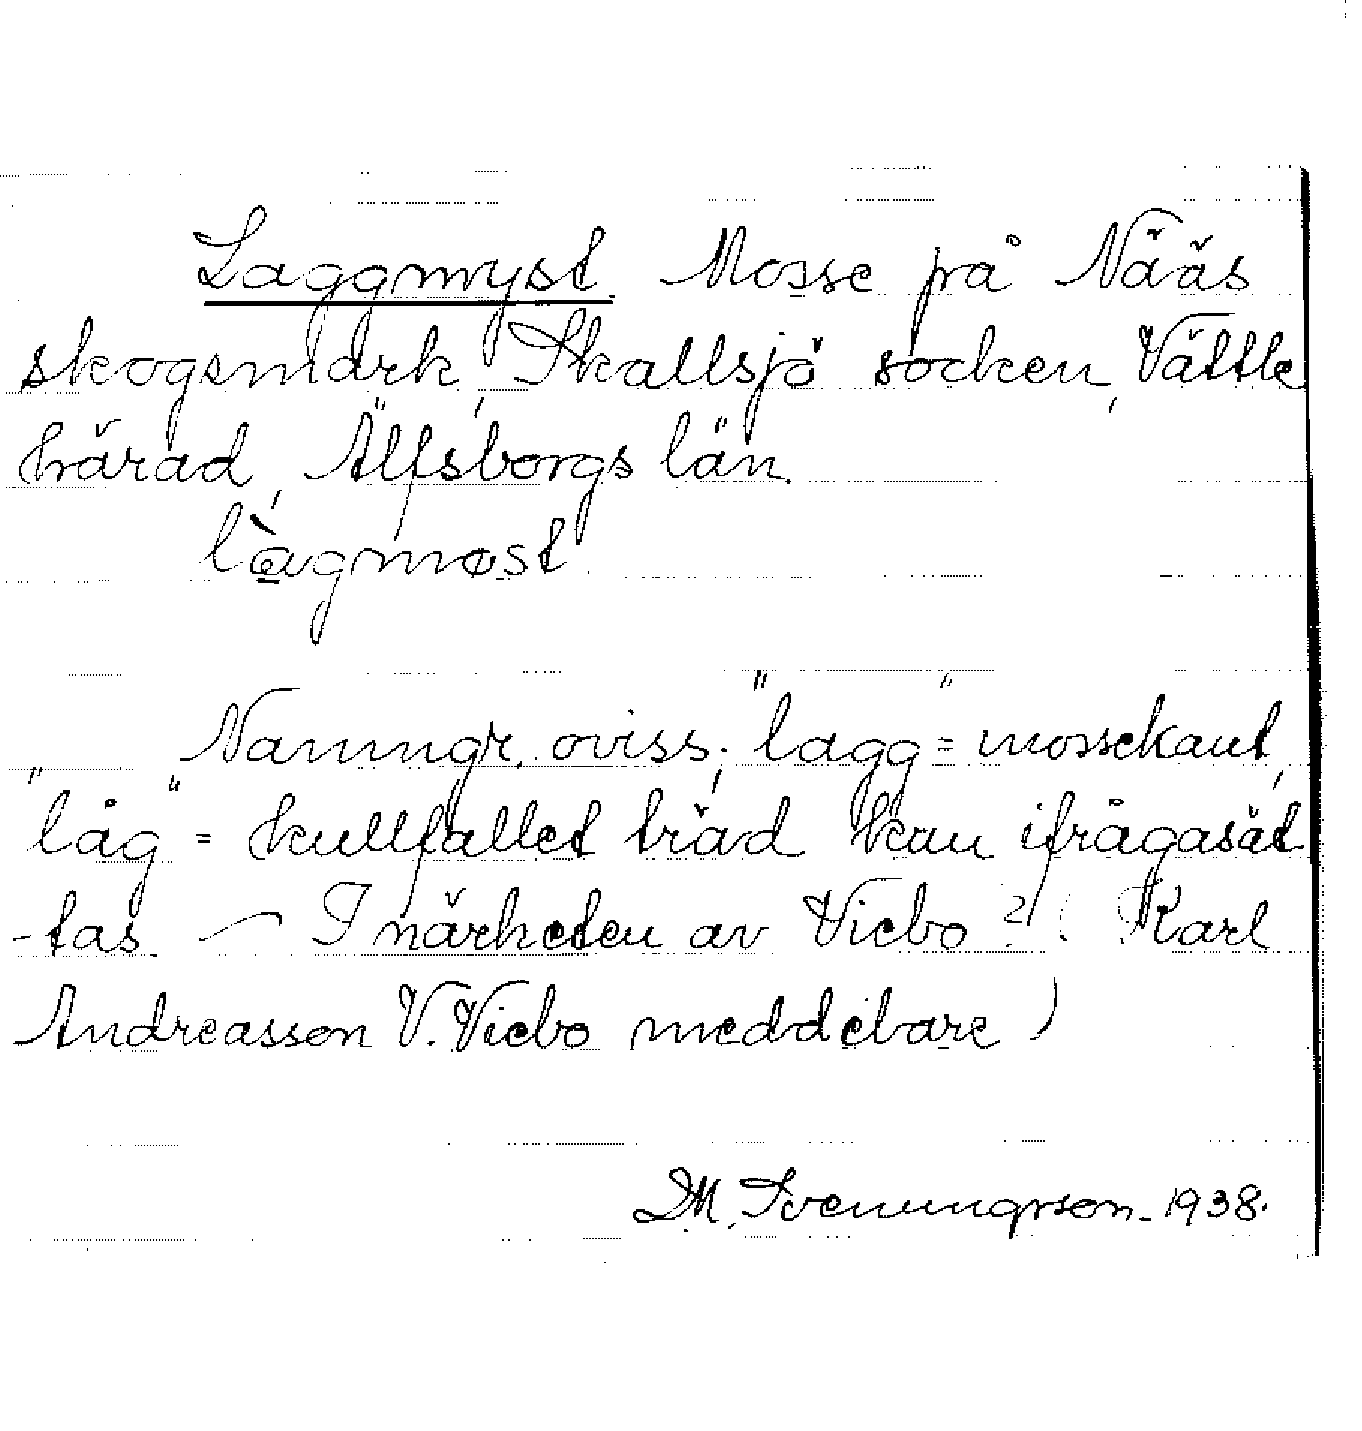 Laggmyst. Mosse på Nääs
skogsmark, Skallsjö socken, Vättle
härad, Älfsborgs län.
làgmøst.
Namngr. oviss; "lagg" = mossekant,
"låg" = kullfallet träd kan ifrågasät
-tas. – I närheten av Viebo? (Karl
Andreasson V. Viebo meddelare)
D.M. Svenungsson. 1938.